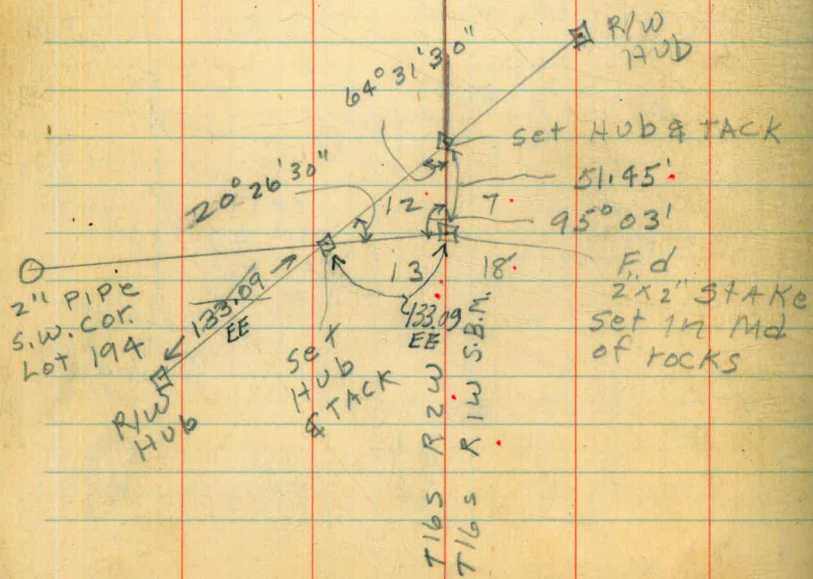 R/W
HUB
64° 31' 30"
set HUB & TACK
51.45'
20° 26' 30"
12
7
95° 03'
13
18
Fd
2"x2" STAKE
set in Md
of rocks
2" PIPE
S.W. COR.
Lot 194
133.09
EE
133.09
EE
set
HUB
& TACK
R/W
HUB
T16S R2W
T16S R1W S.B.M.